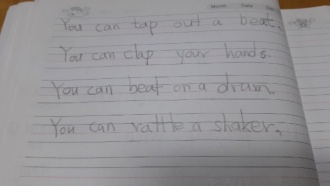 You can tap out a beat.
You can clap your hands.
You can beat on a drum.
You can rattle a shaker.